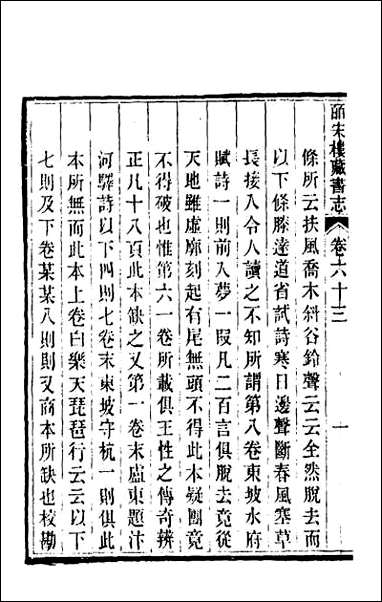 皕宋樓藏書志
卷六十三
一
條所云扶風喬木斜谷鈴聲云云全然脫去而
以下條滕達道省試詩寒日邊聲斷春風塞草
長接入令人讀之不知所謂第八卷東坡水府
賦詩一則前入夢一叚凡二百言俱脫去竟從
天地雖虛廓刻起有尾無頭不得此本疑團竟
不得破也惟第六一卷所載俱王性之傳奇辨
正凡十八頁此本缺之又第一卷末盧東題汴
河驛詩以下四則七卷末東坡守杭一則俱此
本所無而此本上卷白樂天琵琶行云云以下
七則及下卷某某八則則又商本所缺也校勘